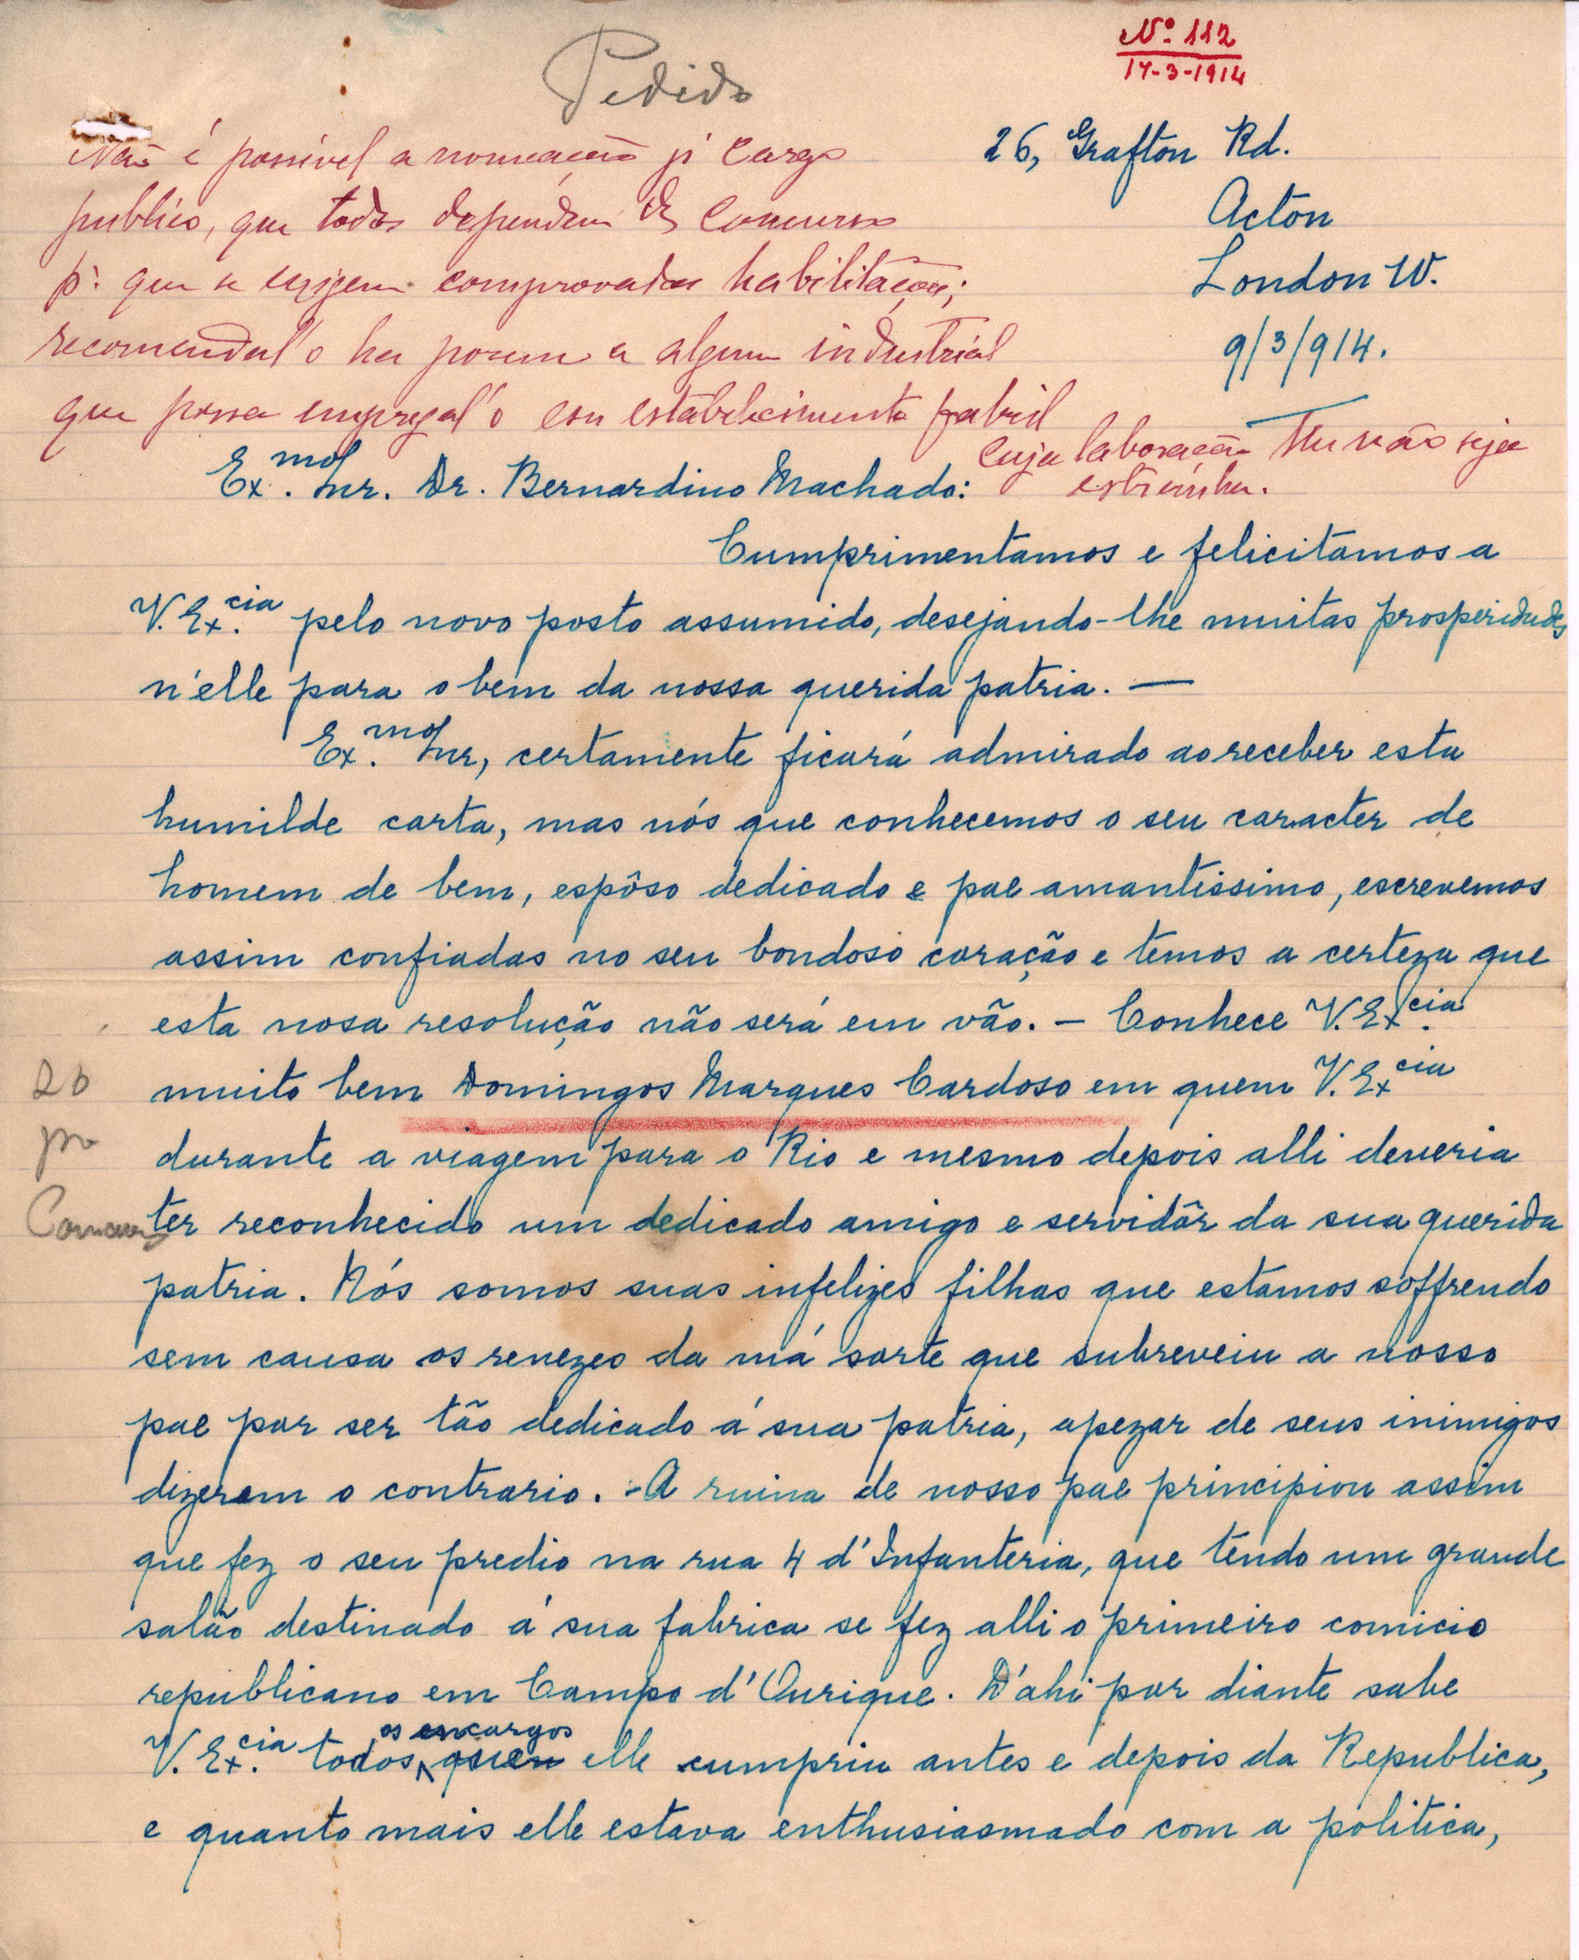 Nº 112
17-3-1914
Pedido
Não é possivel a nomeação pª cargo
publico, que todos dependem de concurso
pª que se exigem comprovadas habilitações;
recomendal'o hei porem a algum industrial
que possa empregal'o em estabelecimento fabril
cuja laboração lhe não seja
estranha.
26, Grafton Rd.
Acton
London W.
9/3/914.
Ex.mo Snr. Dr. Bernardino Machado:
Cumprimentamos e felicitamos a
V. Ex.cia pelo novo posto assumido, desejando-lhe muitas prosperidades
n'elle para o bem da nossa querida patria. —
Ex.mo Snr, certamente ficará admirado ao receber esta
humilde carta, mas nós que conhecemos o seu caracter de
homem de bem, espôso dedicado e pae amantissimo, escrevemos
assim confiadas no seu bondoso coração e temos a certeza que
esta nosa resolução não será em vão. — Conhece V. Ex.cia
muito bem Domingos Marques Cardoso em quem V. Excia
durante a viagem para o Rio e mesmo depois alli deveria
ter reconhecido um dedicado amigo e servidôr da sua querida
patria. Nós somos suas infelizes filhas que estamos soffrendo
sem causa os revezes da má sorte que subreveiu a nosso
pae por ser tão dedicado á sua patria, apezar de seus inimigos
dizerem o contrario. - A ruina de nosso pae principiou assim
que fez o seu predio na rua 4 d'Infanteria, que tendo um grande
salão destinado á sua fabrica se fez alli o primeiro comicio
republicano em Campo d'Ourique. D'ahi por diante sabe
V. Ex.cia todos os encargos que elle cumpriu antes e depois da Republica,
e quanto mais elle estava enthusiasmado com a politica,